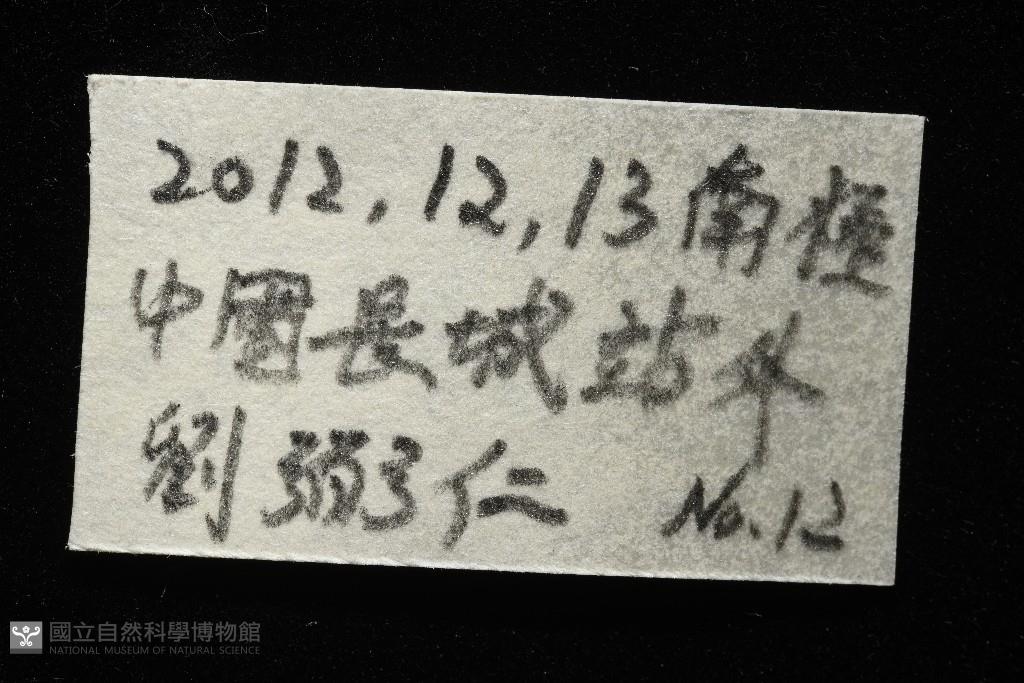 2012,12,13南極
中國長城站外
劉弼仁 No.12
國立自然科學博物館
NATIONAL MUSEUM OF NATURAL SCIENCE